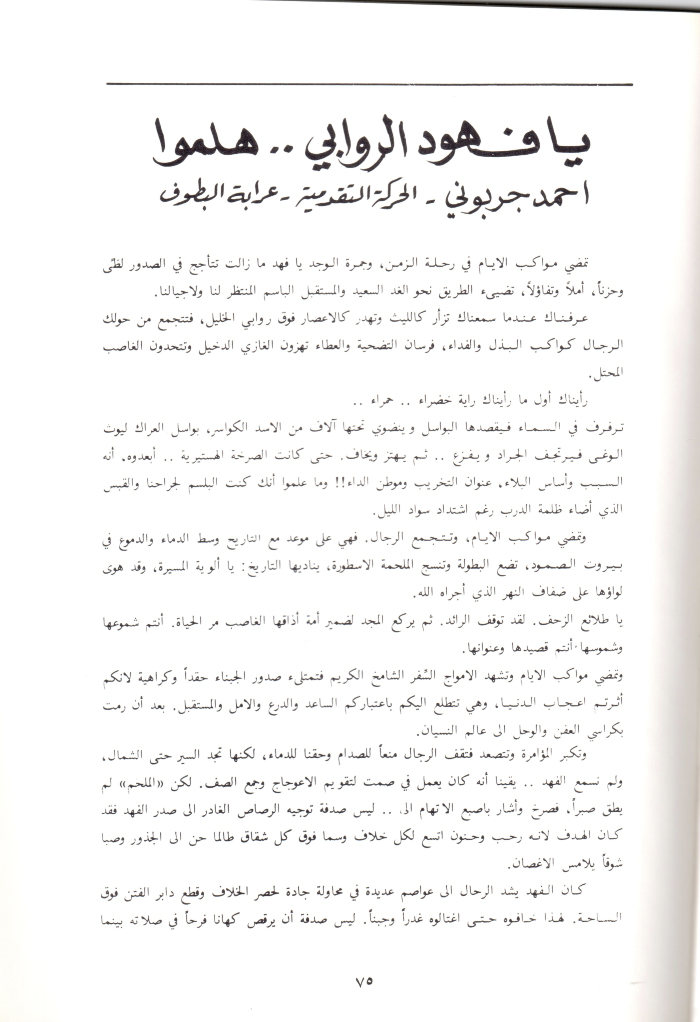 يا فهود الروابي .. هلموا
احمد جربوني - الحركة التقدمية - عرابة البطوف
تمضي مواكب الايام في رحلة الزمن، وجمرة الوجد يا فهد ما زالت تتأجج في الصدور لظىً
وحزناً، أملاً وتفاؤلاً، تضيىء الطريق نحو الغد السعيد والمستقبل الباسم المنتظر لنا ولاجيالنا.
عرفناك عندما سمعناك تزأر كالليث وتهدر كالاعصار فوق روابي الخليل، فتتجمع من حولك
الرجال كواكب البذل والفداء، فرسان التضحية والعطاء تهزون الغازي الدخيل وتتحدون الغاصب
المحتل.
رأيناك أول ما رأيناك راية خضراء .. حمراء ..
ترفرف في السماء فيقصدها البواسل وينضوي تحتها آلاف من الاسد الكواسر، بواسل العراك ليوث
الوغى فيرتجف الجراد ويفزع .. ثم يهتز ويخاف. حتى كانت الصرخة الهستيرية .. أبعدوه، أنه
السبب وأساس البلاء، عنوان التخريب وموطن الداء!! وما علموا أنك كنت البلسم لجراحنا والقبس
الذي أضاء ظلمة الدرب رغم اشتداد سواد الليل.
وتمضي مواكب الايام، وتتجمع الرجال. فهي على موعد مع التاريح وسط الدماء والدموع في
بيروت الصمود، تضع البطولة وتنسج الملحمة الاسطورة، يناديها التاريخ: يا ألوية المسيرة، وقد هوى
لواؤها على ضفاف النهر الذي أجراه الله.
يا طلائع الزحف. لقد توقف الرائد. ثم يركع المجد لضمير أمة أذاقها الغاصب مر الحياة. أنتم شموعها
وشموسها، أنتم قصيدها وعنوانها.
وتمضي مواكب الايام وتشهد الامواج السِّفر الشامخ الكريم فتمتلىء صدور الجبناء حقداً وكراهية لانكم
أثرتم اعجاب الدنيا، وهي تتطلع اليكم باعتباركم الساعد والدرع والامل والمستقبل. بعد أن رمت
بكراسي العفن والوحل الى عالم النسيان.
وتكبر المؤامرة وتتصعد فتقف الرجال منعاً للصدام وحقنا للدماء، لكنها تجد السير حتى الشمال،
ولم نسمع الفهد .. يقينا أنه كان يعمل في صمت لتقويم الاعوجاج وجمع الصف. لكن «الملحم» لم
يطق صبراً، فصرخ وأشار باصبع الاتهام الى .. ليس صدفة توجيه الرصاص الغادر الى صدر الفهد فقد
كان الهدف لانه رحب وحنون اتسع لكل خلاف وسما فوق كل شقاق طالما حن الى الجذور وصبا
شوقاً يلامس الاغصان.
كان الفهد يشد الرحال الى عواصم عديدة في محاولة جادة لحصر الخلاف وقطع دابر الفتن فوق
الساحة. لهذا خافوه حتى اغتالوه غدراً وجبناً. ليس صدفة أن يرقص كهانا فرحاً في صلاته بينما
٧٥